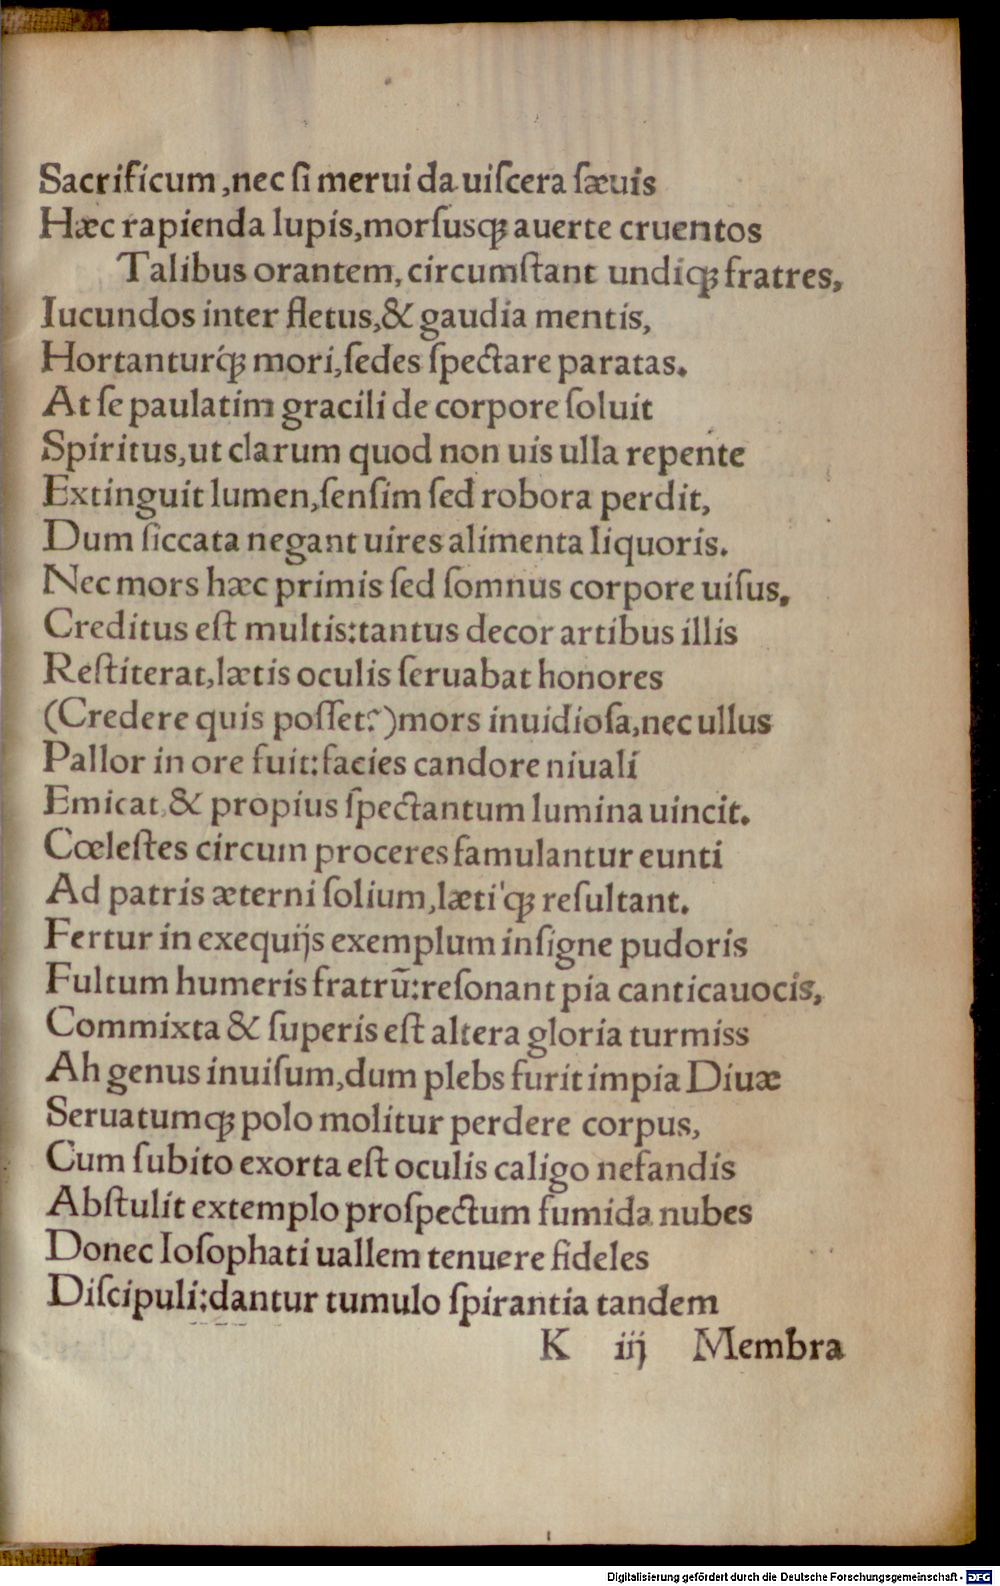 Sacrificum,nec ſi merui da uiſcera ſæuis
Hæc rapienda lupis,morſusqꝫ auerte cruentos
Talibus orantem, circumſtant undiqꝫ fratres,
Iucundos inter fletus,& gaudia mentis,
Hortanturq́ꝫ mori,ſedes ſpectare paratas.
At ſe paulatim gracili de corpore ſoluit
Spiritus,ut clarum quod non uis ulla repente
Extinguit lumen,ſenſim ſed robora perdit,
Dum ſiccata negant uires alimenta liquoris.
Nec mors hæc primis ſed ſomnus corpore uiſus.
Creditus eſt multis:tantus decor artibus illis
Reſtiterat,lætis oculis ſeruabat honores
(Credere quis poſſet?)mors inuidioſa,nec ullus
Pallor in ore fuit:facies candore niuali
Emicat,& propius ſpectantum lumina uincit.
Cœleſtes circum proceres famulantur eunti
Ad patris æterni ſolium,læti'qꝫ reſultant.
Fertur in exequijs exemplum inſigne pudoris
Fultum humeris fratrū:reſonant pia cantica uocis,
Commixta & ſuperis eſt altera gloria turmiss
Ah genus inuiſum,dum plebs furit impia Diuæ
Seruatumqꝫ polo molitur perdere corpus,
Cum ſubito exorta eſt oculis caligo nefandis
Abſtulit extemplo proſpectum fumida nubes
Donec Ioſophati uallem tenuere fideles
Diſcipuli:dantur tumulo ſpirantia tandem
K iij Membra
Digitalisierung gefördert durch die Deutsche Forschungsgemeinschaft - DFG